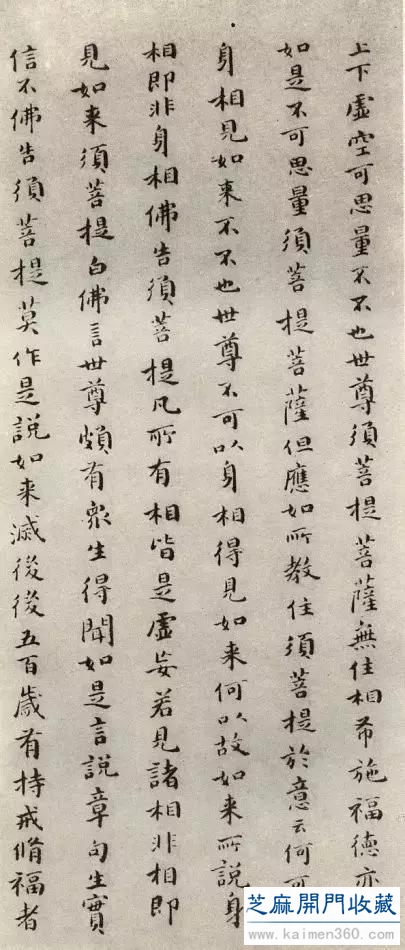 上下虛空可思量不不也世尊須菩提菩薩無住相布施福德亦
如是不可思量須菩提菩薩但應如所教住須菩提於意云何可
身相見如来不不也世尊不可以身相得見如来何以故如来所說身
相即非身相佛告須菩提凡所有相皆是虛妄若見諸相非相即
見如来須菩提白佛言世尊頗有衆生得聞如是言說章句生實
信不佛告須菩提莫作是說如来滅後後五百歲有持戒脩福者
芝麻開門收藏
www.kaimen360.com